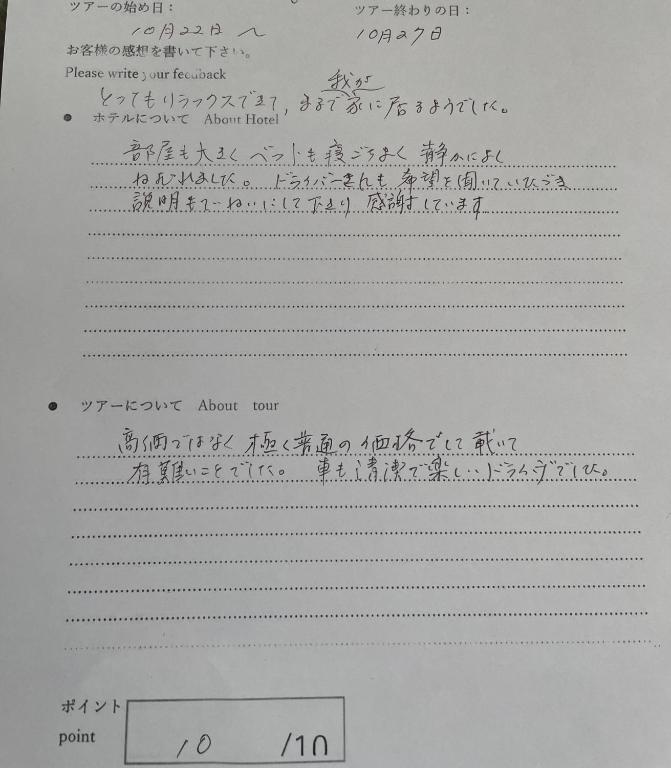 ツアーの始め日： ツアー終わりの日：
10月22日 〜 10月27日
お客様の感想を書いて下さい。
Please write your feedback
我が
とってもリラックスできて, まるで家に居るようでした。
● ホテルについて About Hotel
部屋も大きく ベットも寝ごちよく 静かによく
ねむれました。 ドライバーさんも 希望を聞いていただき
説明もていねいにして下さり 感謝しています
● ツアーについて About tour
高価ではなく 極く普通の価格でして 戴いて
有難いことでした。 車も清潔で楽しいドライブでした。
ポイント
point 10 /10